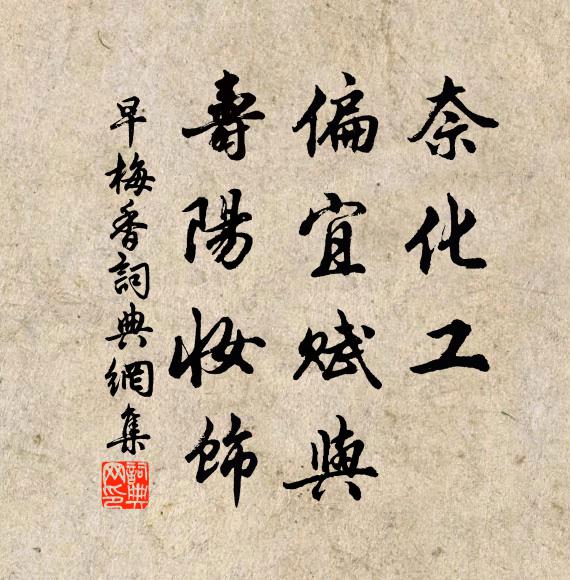 奈化工
偏宜賦與
壽陽妝飾
早梅香詞典網集
詞典网印